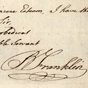 sincere Esteem, I have the
Sir
obedient
Servant
B Franklin